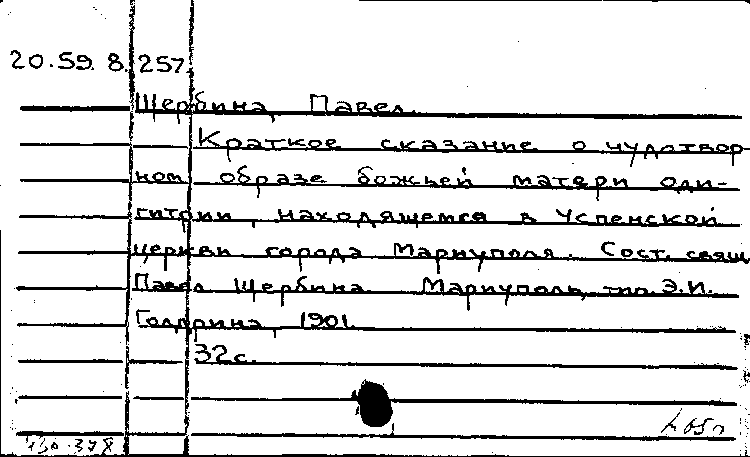 20.59.8.257.
Щербина, Павел.
Краткое сказание о чудотвор-
ном образе божьей матери оди-
гитрии, находящемся в Успенской
церкви города Мариуполя. Сост. свящ.
Павел Щербина. Мариуполь, тип. Э.И.
Голдрина, 1901.
32с.